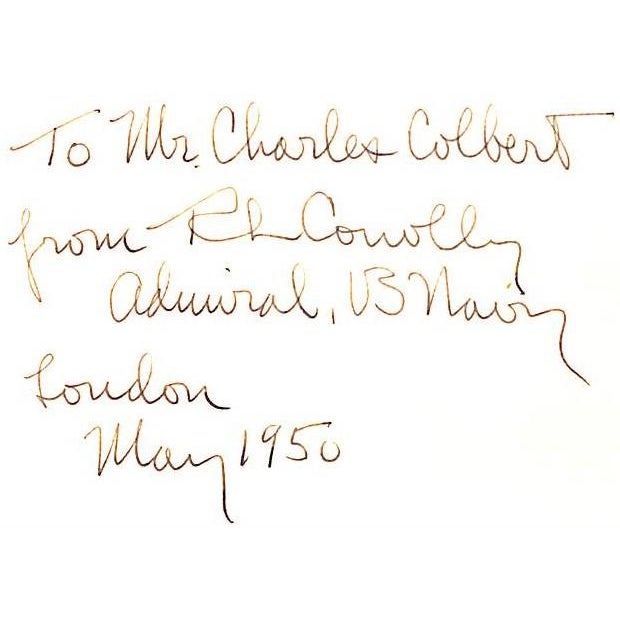 To Mr. Charles Colbert
from RL Conolly
Admiral, US Navy
London
May 1950